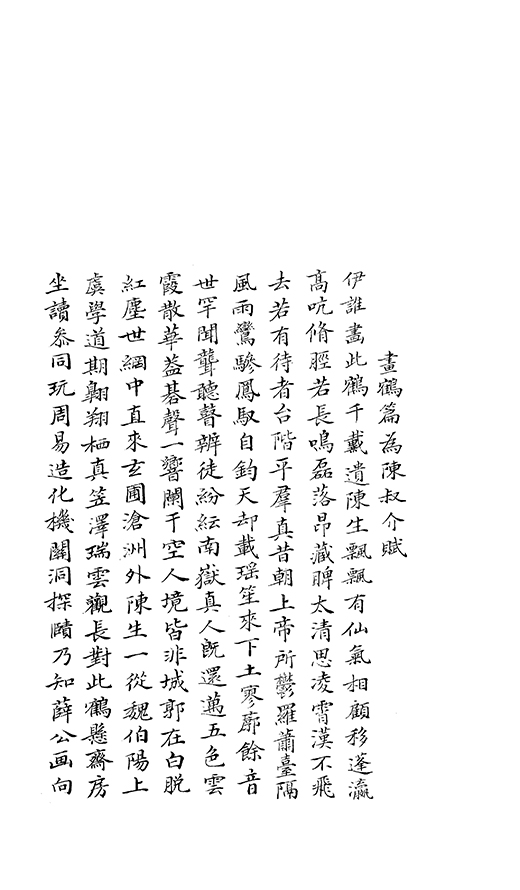 畫鶴篇為陳叔介賦
伊誰畫此鶴千載遺陳生飄飄有仙氣相顧移蓬瀛
高吭脩脛若長鳴磊落昂藏脾太清思凌霄漢不飛
去若有待者台階平羣真昔朝上帝所鬱羅蕭臺隔
風雨鸞驂鳳馭自鈞天却載瑶笙來下土寥廓餘音
世罕聞聾聽瞽辨徒紛紜南嶽真人旣還邁五色雲
霞散華葢碁聲一響闌干空人境皆非城郭在白脱
紅塵世網中直來玄圃滄洲外陳生一從魏伯陽上
虞學道期翺翔栖真笠澤瑞雲觀長對此鶴懸齋房
坐讀叅同玩周易造化機關洞探賾乃知薛公画向